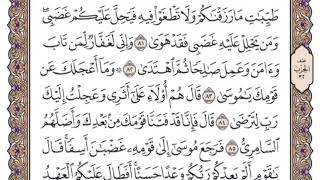 طَيِّبَٰتِ مَا رَزَقْنَٰكُمْ وَلَا تَطْغَوْا۟ فِيهِ فَيَحِلَّ عَلَيْكُمْ غَضَبِى ۖ
وَمَن يَحْلِلْ عَلَيْهِ غَضَبِى فَقَدْ هَوَىٰ ٨١ وَإِنِّى لَغَفَّارٌ لِّمَن تَابَ
وَءَامَنَ وَعَمِلَ صَٰلِحًا ثُمَّ ٱهْتَدَىٰ ٨٢ ۞ وَمَآ أَعْجَلَكَ عَن
قَوْمِكَ يَٰمُوسَىٰ ٨٣ قَالَ هُمْ أُو۟لَآءِ عَلَىٰٓ أَثَرِى وَعَجِلْتُ إِلَيْكَ
رَبِّ لِتَرْضَىٰ ٨٤ قَالَ فَإِنَّا قَدْ فَتَنَّا قَوْمَكَ مِنۢ بَعْدِكَ وَأَضَلَّهُمُ
ٱلسَّامِرِىُّ ٨٥ فَرَجَعَ مُوسَىٰٓ إِلَىٰ قَوْمِهِۦ غَضْبَٰنَ أَسِفًا ۚ قَالَ
يَٰقَوْمِ أَلَمْ يَعِدْكُمْ رَبُّكُمْ وَعْدًا حَسَنًا ۚ أَفَطَالَ عَلَيْكُمُ ٱلْعَهْدُ